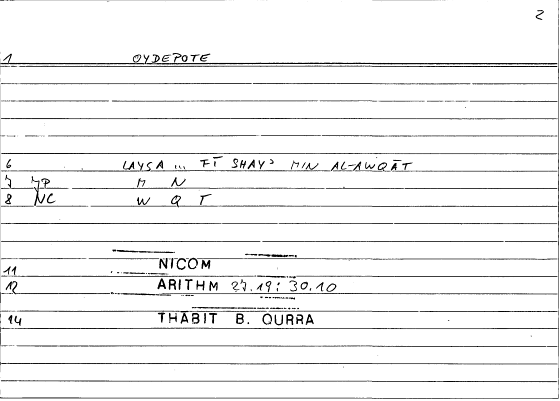 2
1 OYDEPOTE
6 LAYSA ... FĪ SHAYʾ MIN AL-AWQĀT
7 JP M N
8 NC W Q T
11 NICOM
12 ARITHM 27.19: 30.10
14 THABIT B. QURRA